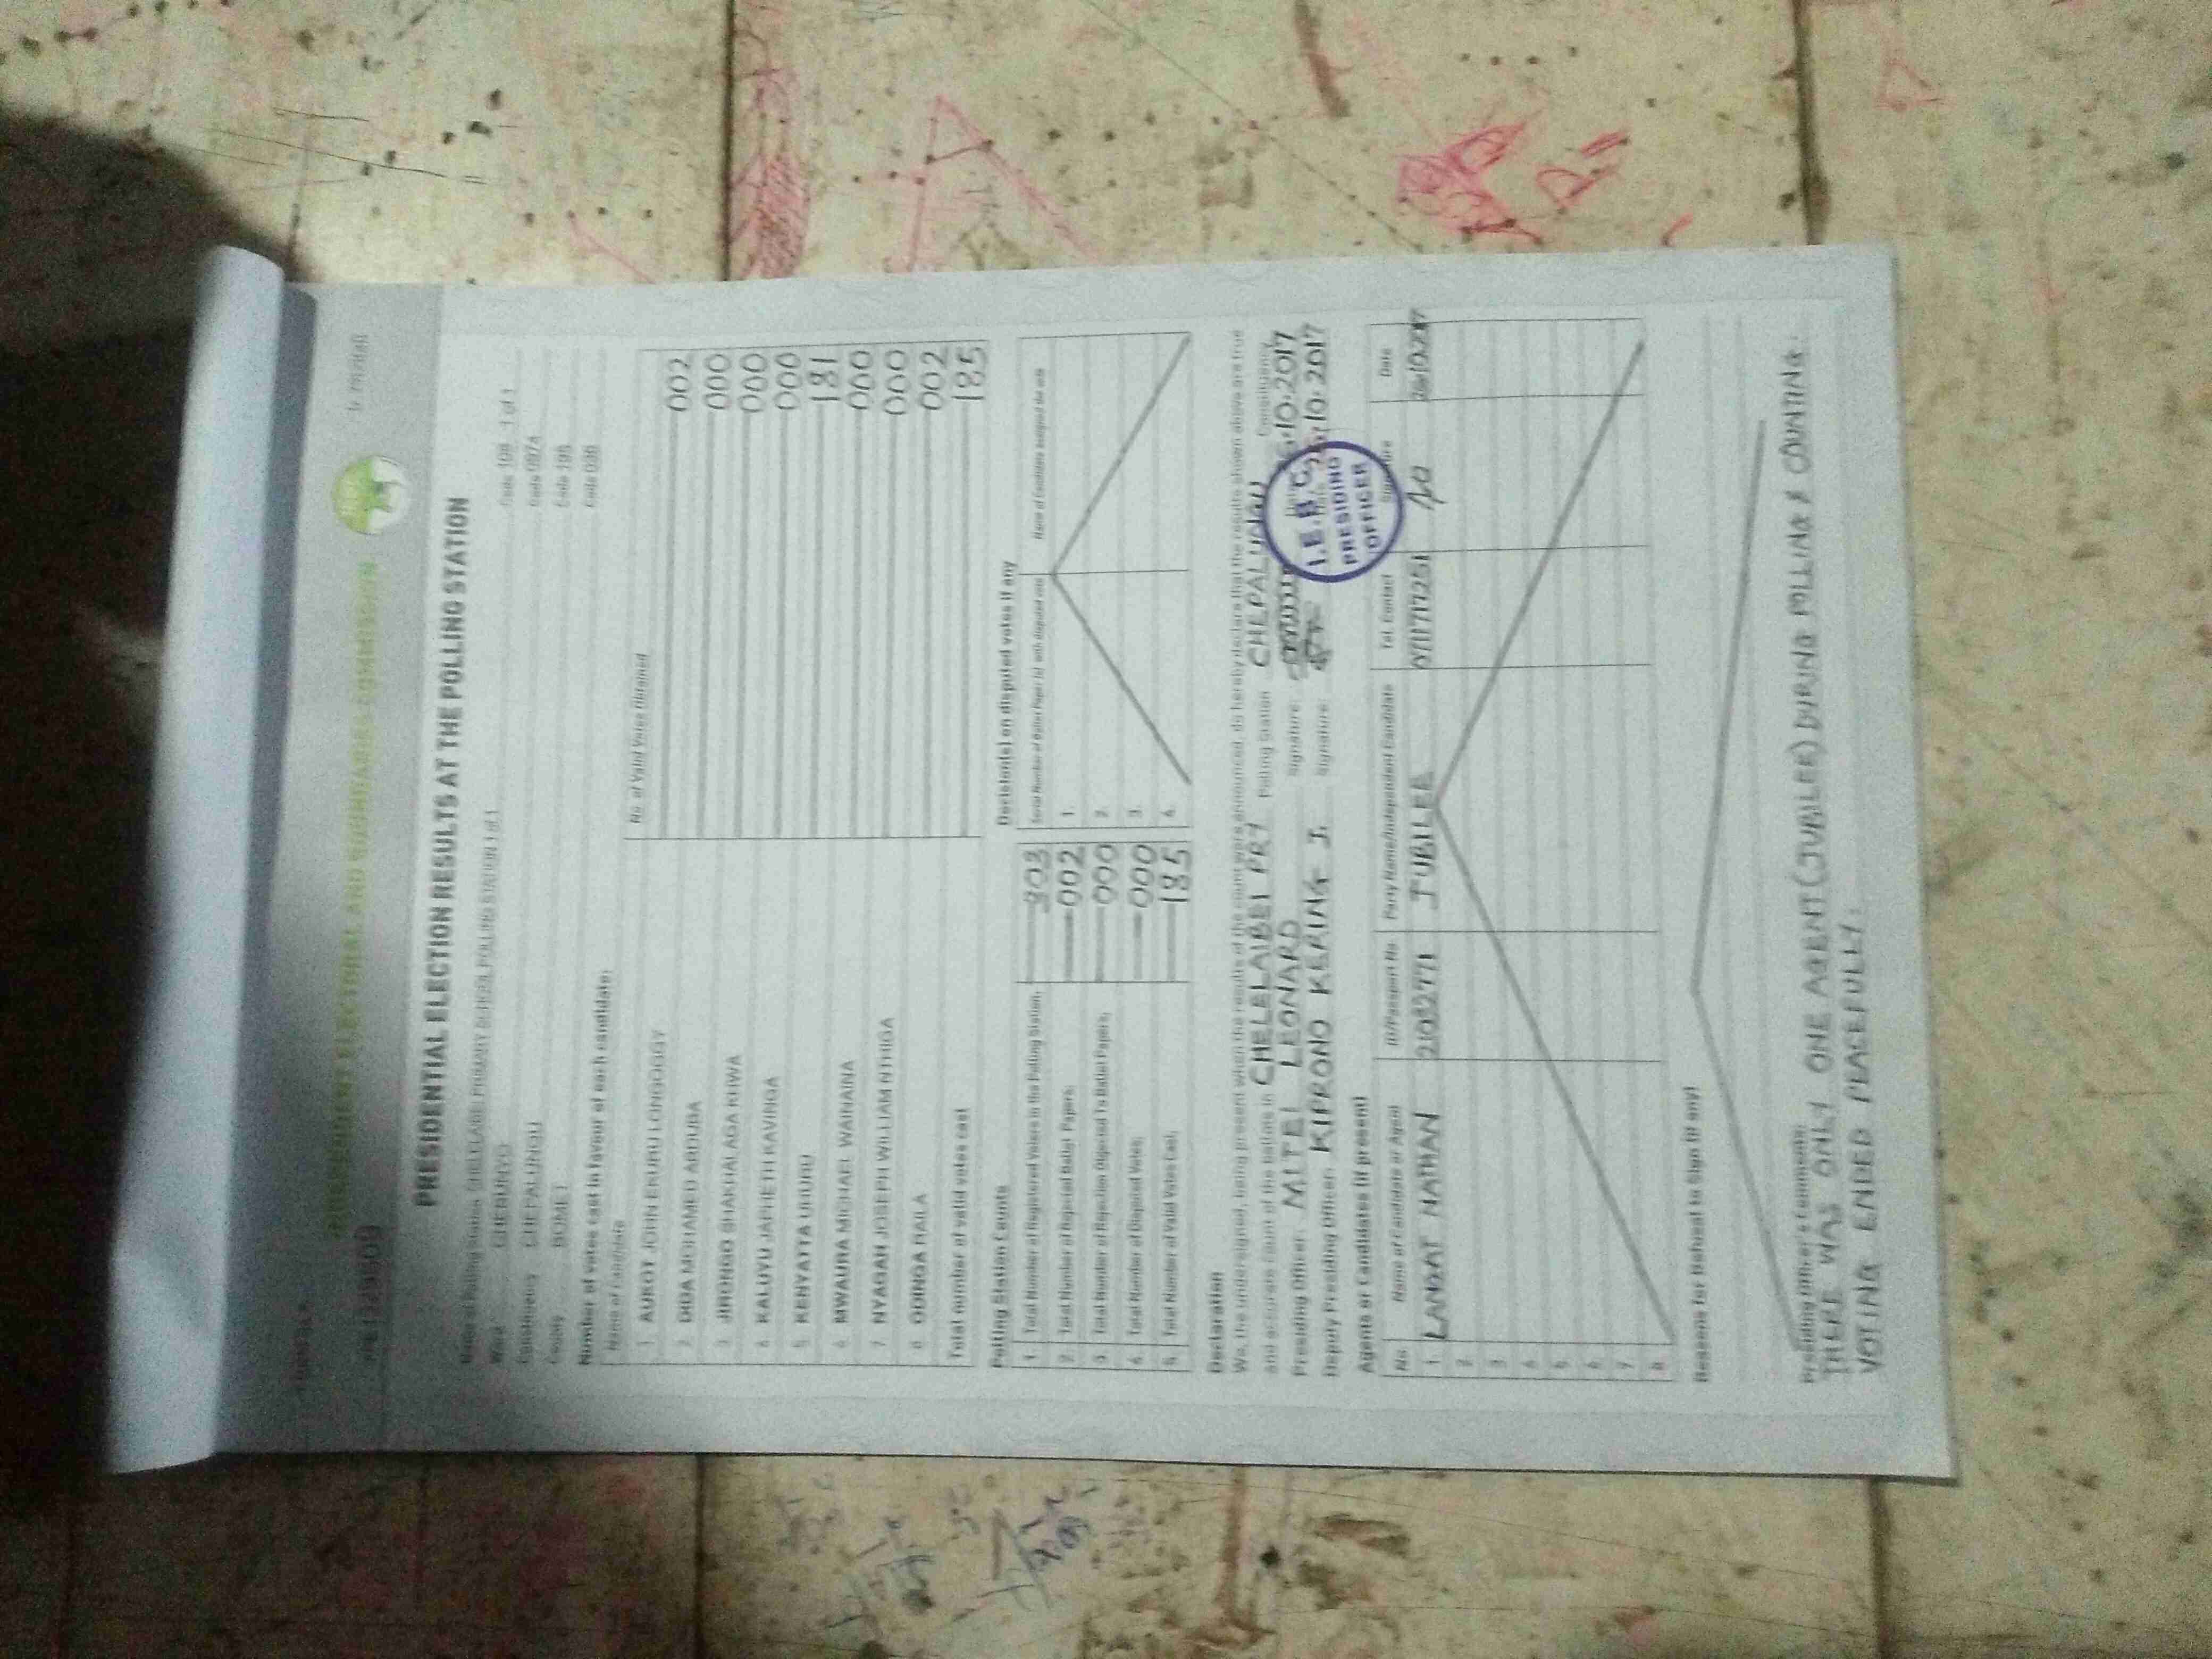 INDEPENDENT ELECTORAL AND BOUNDARIES COMMISSION
PRESIDENTIAL ELECTION RESULTS AT THE POLLING STATION
Ward CHEBUNYO
Constituency CHEPALUNGU
County BOMET
Number of votes cast in favour of each candidate:
Name of Candidate No. of Valid Votes Obtained
1 AUKOT JOHN EKURU LONGOGGY 002
2 DIDA MOHAMED ABDUBA 000
3 JIRONGO SHAKHALAGA KHWA 000
4 KALUYU JAPHETH KAVINGA 000
5 KENYATTA UHURU 181
6 MWAURA MICHAEL WAINAINA 000
7 NYAGAH JOSEPH WILLIAM NTHIGA 000
8 ODINGA RAILA 002
Total number of valid votes cast 185
Polling Station Counts
1. Total Number of Registered Voters in the Polling Station;
2. Total Number of Rejected Ballot Papers; 002
3. Total Number of Rejection Objected To Ballot Papers; 000
4. Total Number of Disputed Votes; 000
5. Total Number of Valid Votes Cast; 185
Decision(s) on disputed votes if any
1.
2.
3.
4.
Declaration
We, the undersigned, being present when the results of the count were announced, do hereby declare that the results shown above are true
and accurate count of the ballots in CHELELAIBEI PRY Polling Station CHEPALUNGU Constituency
Presiding Officer: MITEI LEONARD Signature:
Deputy Presiding Officer: KIPRONO KERING J. Signature: 26.10.2017
I.E.B.C
PRESIDING
OFFICER
Agents or Candidates (if present)
No. Name of Candidate or Agent ID/Passport No Party Name/Independent Candidate Tel. Contact Signature Date
1. LANGAT NATHAN JUBILEE
2.
3.
4.
5.
6.
7.
8.
Reasons for Refusal to Sign (if any)
Presiding Officer's Comments:
THERE WAS ONLY ONE AGENT (JUBILEE) DURING POLLING & COUNTING.
VOTING ENDED PEACEFULLY.